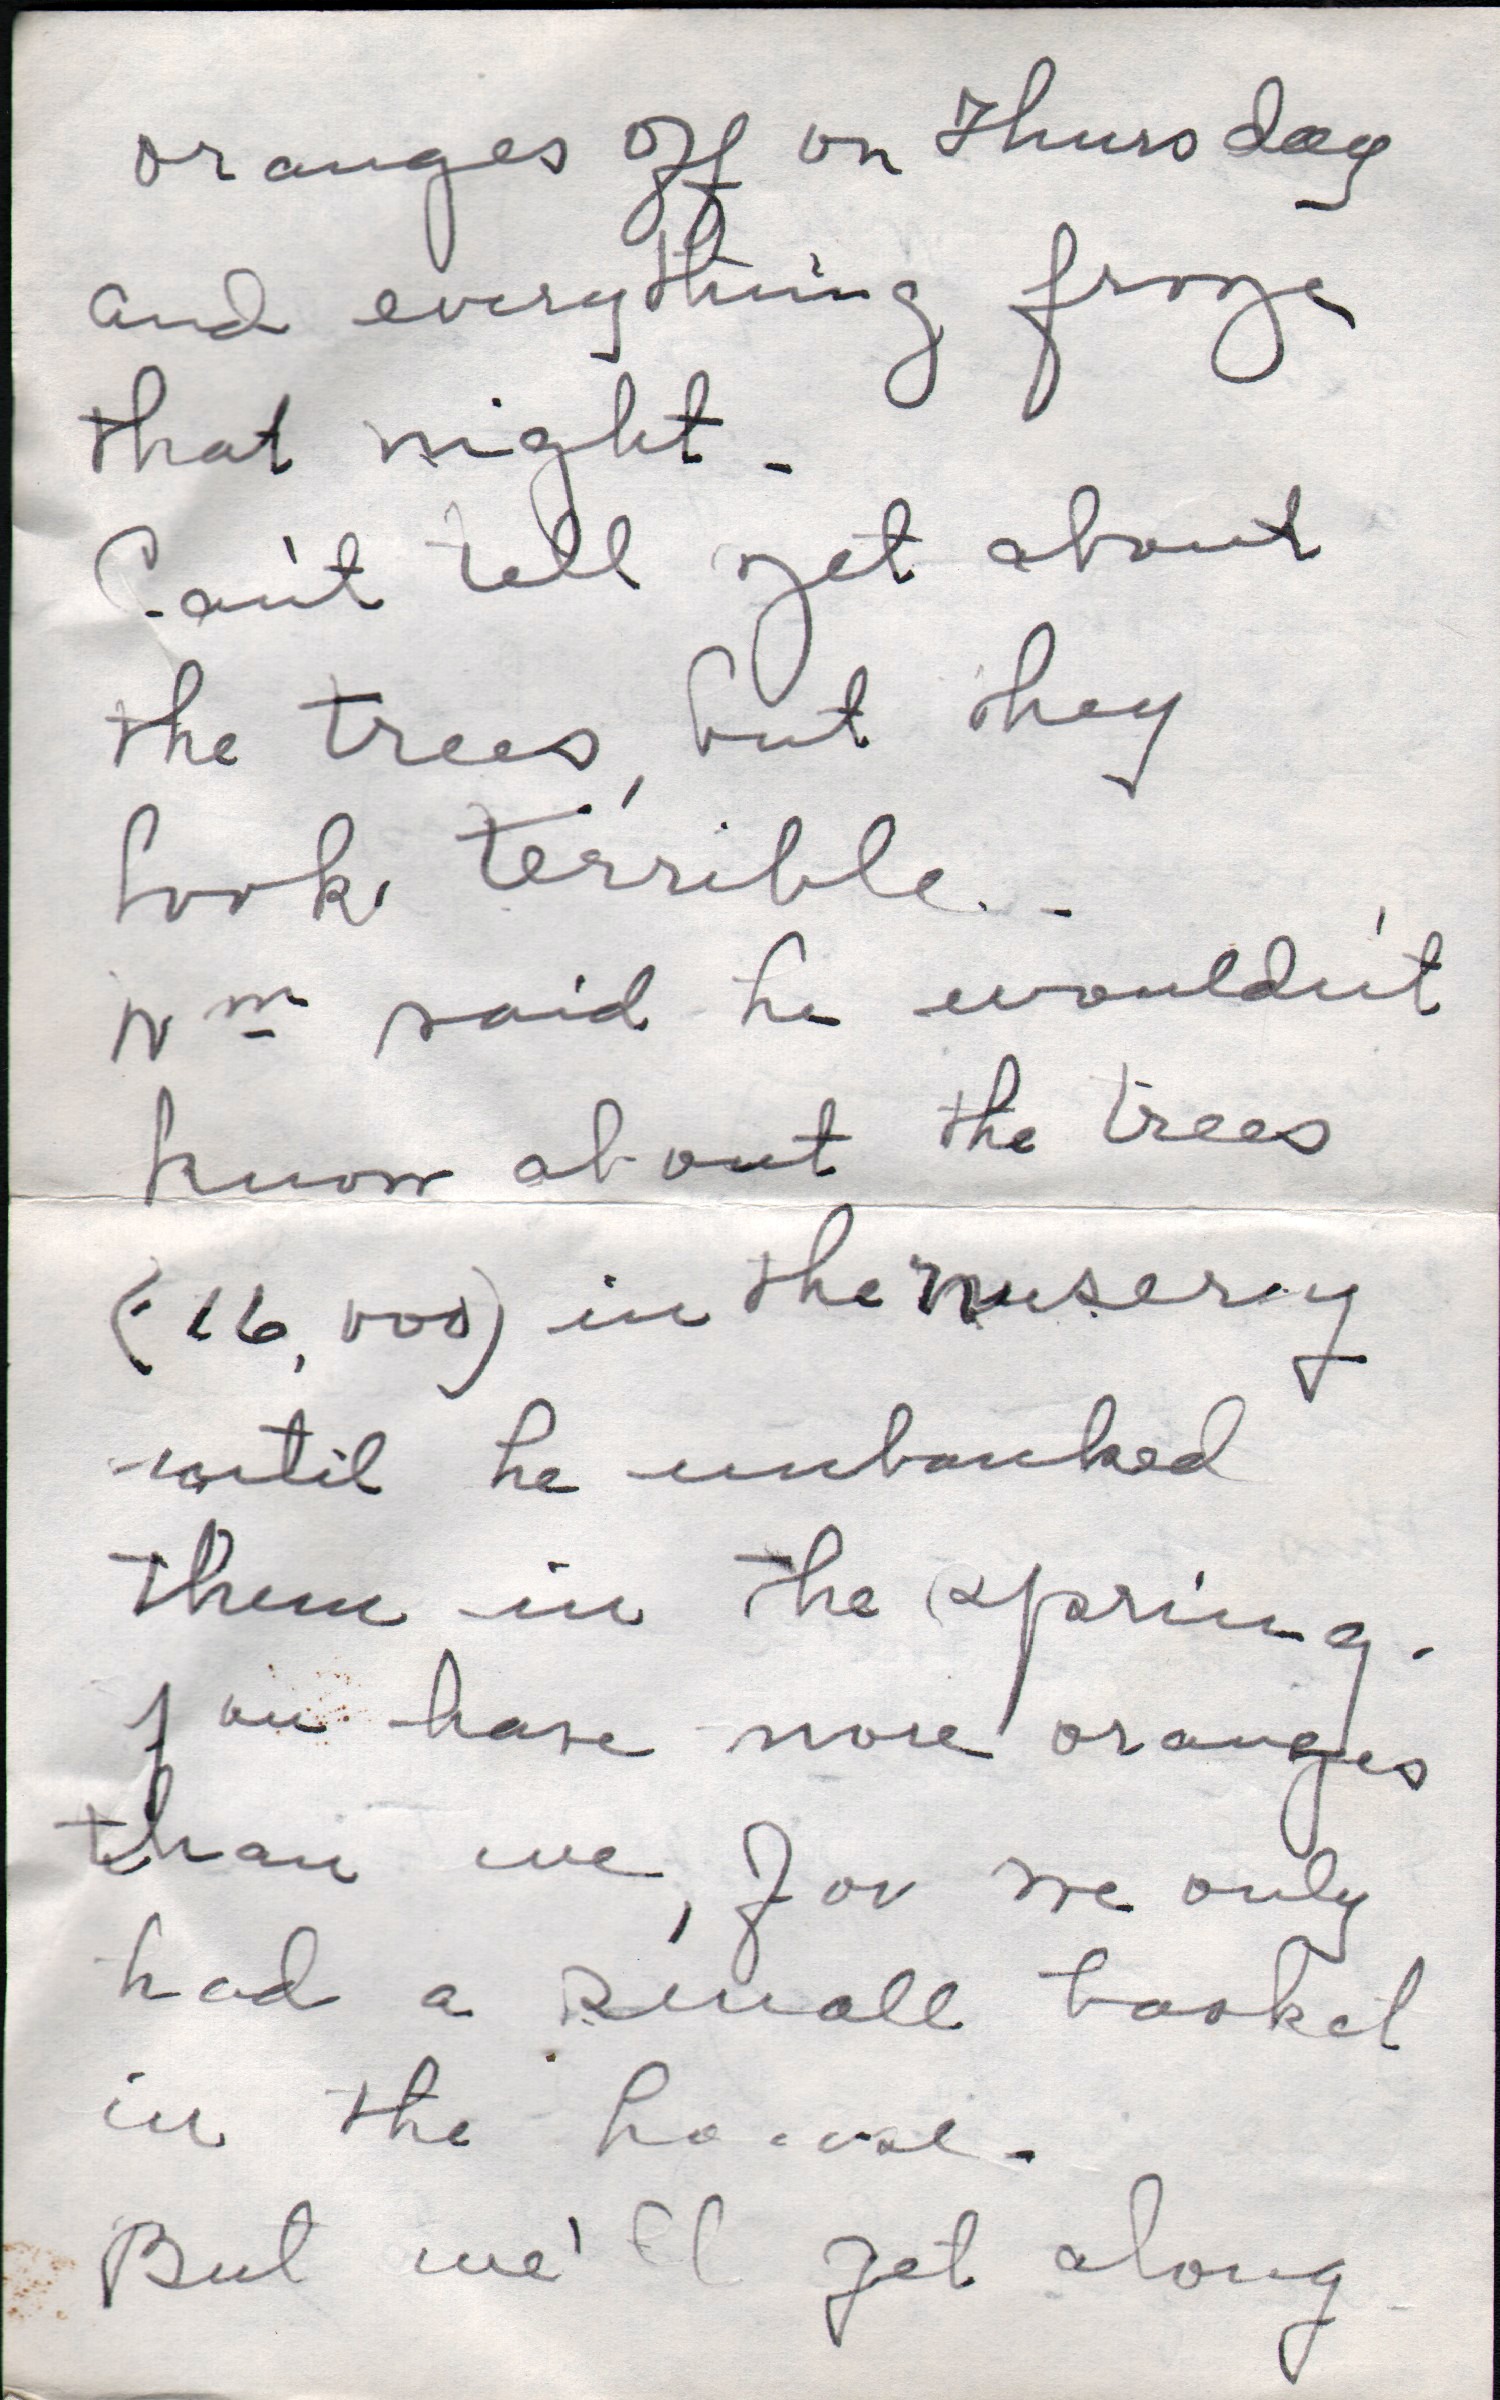 oranges off on Thursday
and everything froze
that night -
Can't tell yet about
the trees, but they
look terrible. -
Wm said he wouldn't
know about the trees
(16,000) in the nusery
until he unbanked
them in the spring.
You have more oranges
than we, for we only
had a small basket
in the house.
But we'll get along